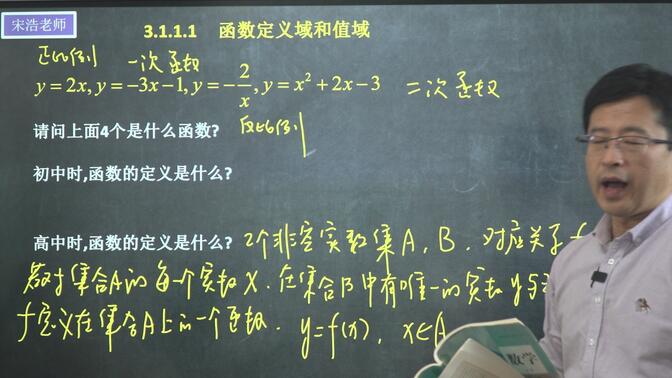 宋浩老师
3.1.1.1 函数定义域和值域
正比例 一次函数
y = 2x, y = −3x −1, y = −2/x, y = x² + 2x − 3 二次函数
请问上面4个是什么函数? 反比例
初中时,函数的定义是什么?
高中时,函数的定义是什么? 2个非空实数集A, B. 对应关系f
对集合A的每一个实数x. 在集合B中有唯一的实数y与
f定义在集合A上的一个函数. y=f(x), x∈A
数学